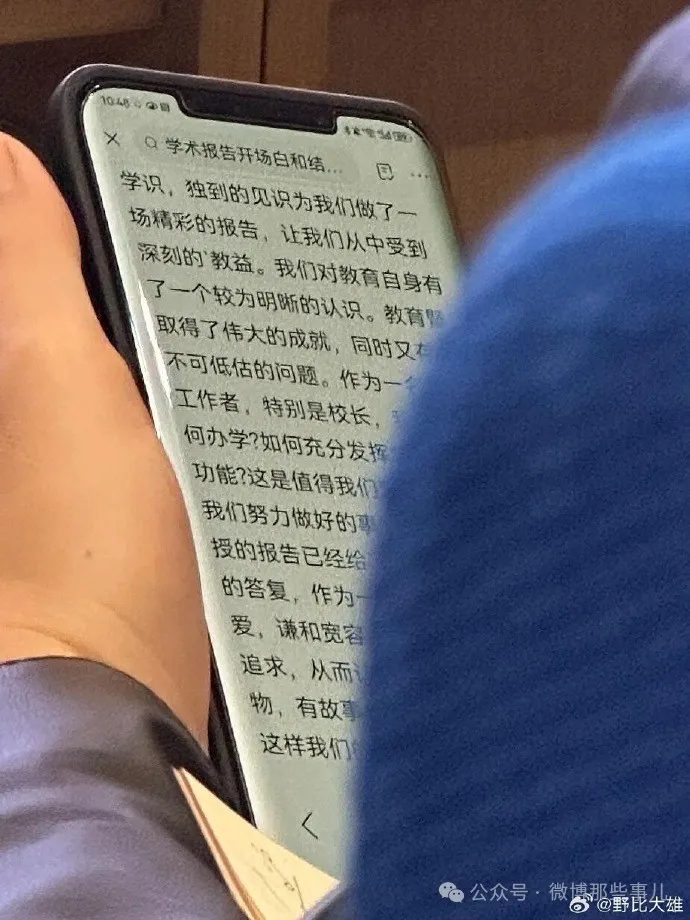 10:48
学术报告开场白和结...
学识，独到的见识为我们做了一
场精彩的报告，让我们从中受到
深刻的'教益。我们对教育自身有
了一个较为明晰的认识。教育
取得了伟大的成就，同时又
不可低估的问题。作为一
工作者，特别是校长，
何办学?如何充分发挥
功能?这是值得我们
我们努力做好的事
授的报告已经给
的答复，作为一
爱，谦和宽容
追求，从而
物，有故事
这样我们
公众号·微博那些事儿
@野比大雄